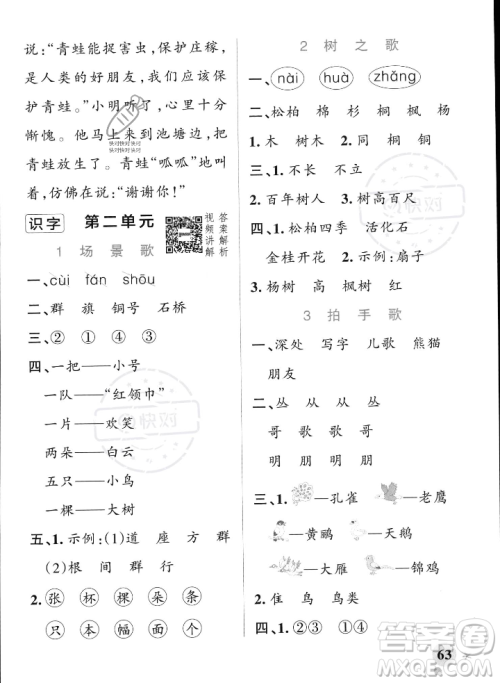 说：“青蛙能捉害虫，保护庄稼，
是人类的好朋友，我们应该保
护青蛙。”小明听了，心里十分
惭愧。他马上来到池塘边，
把青蛙放了。青蛙“呱呱”地叫
着，仿佛在说：“谢谢你！”
识字 第二单元
视频讲解
答案解析
1 场景歌
一、cùi fán shōu
二、群 旗 铜号 石桥
三、② ① ④ ③
四、一把——小号
一队——“红领巾”
一片——欢笑
两朵——白云
一只——小鸟
一棵——大树
五、1. 示例：(1)道 座 方 群
(2)根 间 群 行
2. 张 杯 棵 朵 条
只 本 幅 面 个
2 树之歌
一、nài huà zhāng
二、松柏 棉 杉 桐 枫 杨
1. 木 树木 2. 同 桐 铜
三、1. 不长 不厚 直立
2. 百年树人 树高百尺
四、1. 松柏四季 活化石
金桂开花 2. 示例：扇子
3. 杨树 高 枫树 红
3 拍手歌
一、深处 写字 儿歌 熊猫
朋友
二、丛 丛 丛 丛
哥 歌 歌 歌
明 朋 明 朋
三、1. —孔雀 —老鹰
—黄鹂 —天鹅
—大雁 —锦鸡
2. 隹 鸟 鸟类
四、1. ①②③ ①②④
63
答案圈
MXQE.COM